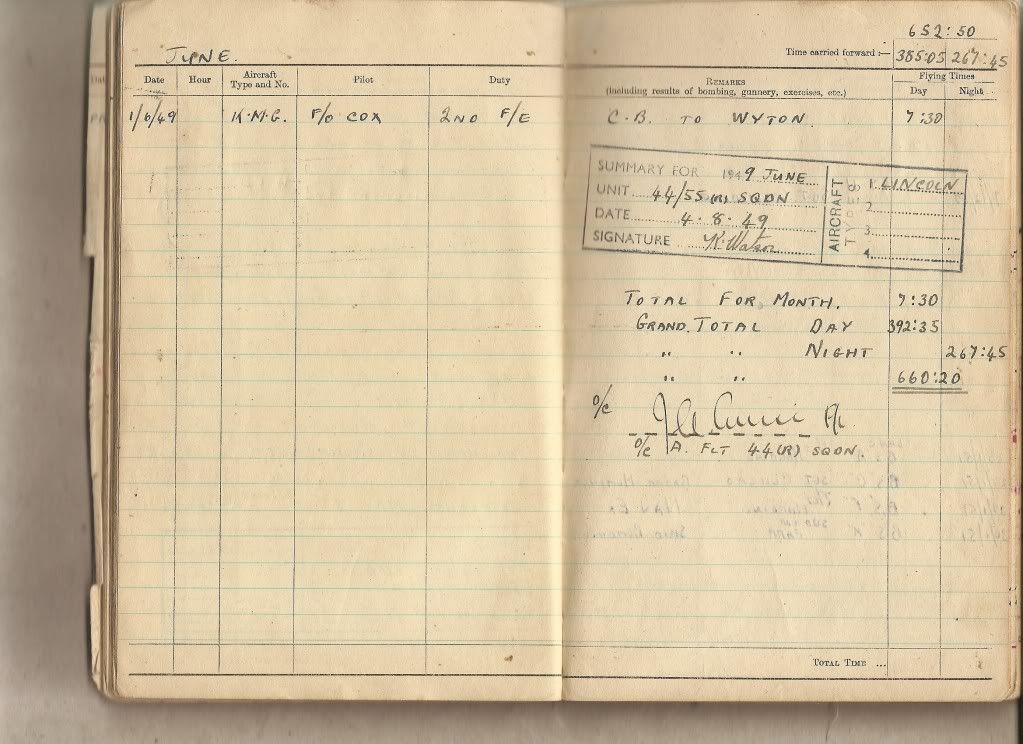 JUNE.
652:50
Time carried forward :— 385:05 267:45
Date Hour Aircraft Type and No. Pilot Duty REMARKS (including results of bombing, gunnery, exercises, etc.) Flying Times Day Night
1/6/49 K.M.G. F/O COX 2ND F/E C.B. TO WYTON. 7:30
SUMMARY FOR 1949 JUNE
UNIT 44/55 (R) SQDN
DATE 4.8.49
SIGNATURE K. Watson
AIRCRAFT TYPES
1 LINCOLN
2
3
4
TOTAL FOR MONTH. 7:30
GRAND TOTAL DAY 392:35
" " NIGHT 267:45
" " 660:20
O/C
O/C A. FLT 44(R) SQDN.
TOTAL TIME ...